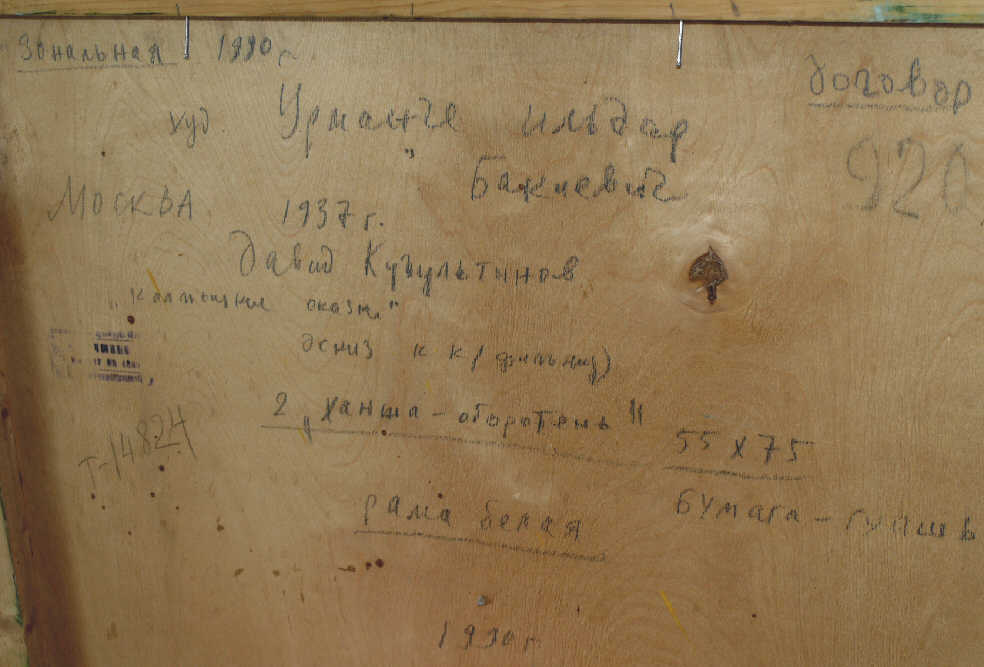 Зональная 1990 г.
договор
920
худ. Урманче Ильдар
Бакиевич
Москва 1937 г.
Давид Кугультинов
"Калмыцкие сказки"
эскиз к к/фильму)
2 "Ханша - оборотень" 55 x 75
Т-14824
рама белая бумага - гуашь
1990 г